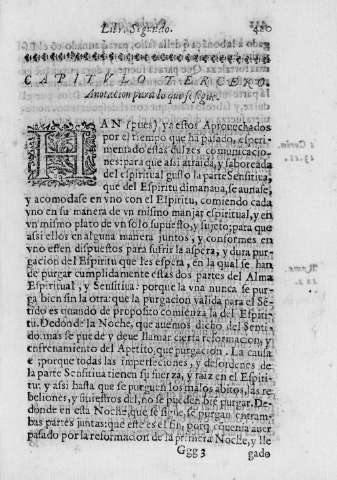 Libr. Segundo.
420
CAPITVLO TERCERO.
Anotacion para lo que se sigue.
HAN (pues) ya estos Aprouechados
por el tiempo que ha pasado, esperi-
mentado estas dulzes comunicacio-
nes: para que asi atraida, y saboreada
del espiritual gusto la parte Sensitiua,
que del Espiritu dimanaua, se aunase,
y acomodase en vno con el Espiritu, comiendo cada
vno en su manera de vn mismo manjar espiritual, y en
vn mismo plato de vn solo supuesto, y sujeto; para que
assi ellos en alguna manera juntos, y conformes en
vno esten dispuestos para sufrir la aspera, y dura pur-
gacion del Espiritu que les espera, en la qual se han
de purgar cumplidamente estas dos partes del Alma
Espiritual, y Sensitiua: porque la vna nunca se pur-
ga bien sin la otra: que la purgacion valida para el Sē-
tido es quando de proposito comienza la del Espiri-
tu. Dedonde la Noche, que auemos dicho del Senti-
do, mas se puede y deue llamar cierta reformacion, y
enfrenamiento del Apetito, que purgacion. La causa
e; porque todas las imperfecciones, y desordenes de
la parte Sensitiua tienen su fuerza, y raiz en el Espiri-
tu: y asi hasta que se purguen los malos abitos, las re-
beliones, y siniestros del, no se pueden biē purgar. De-
donde en esta Noche, que se sigue, se purgan entram-
bas partes juntas: que este es el fin, porq̄ cōuenia auer
pasado por la reformacion de la primera Noche, y lle
Ggg 3
gado